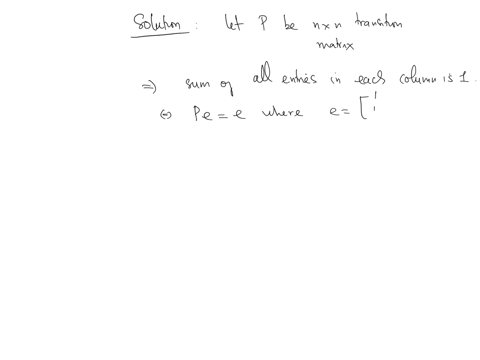 Solution : let P be n×n transition
matrix
⇒ sum of all entries in each column is 1.
⇔ Pe = e where e = [1
1